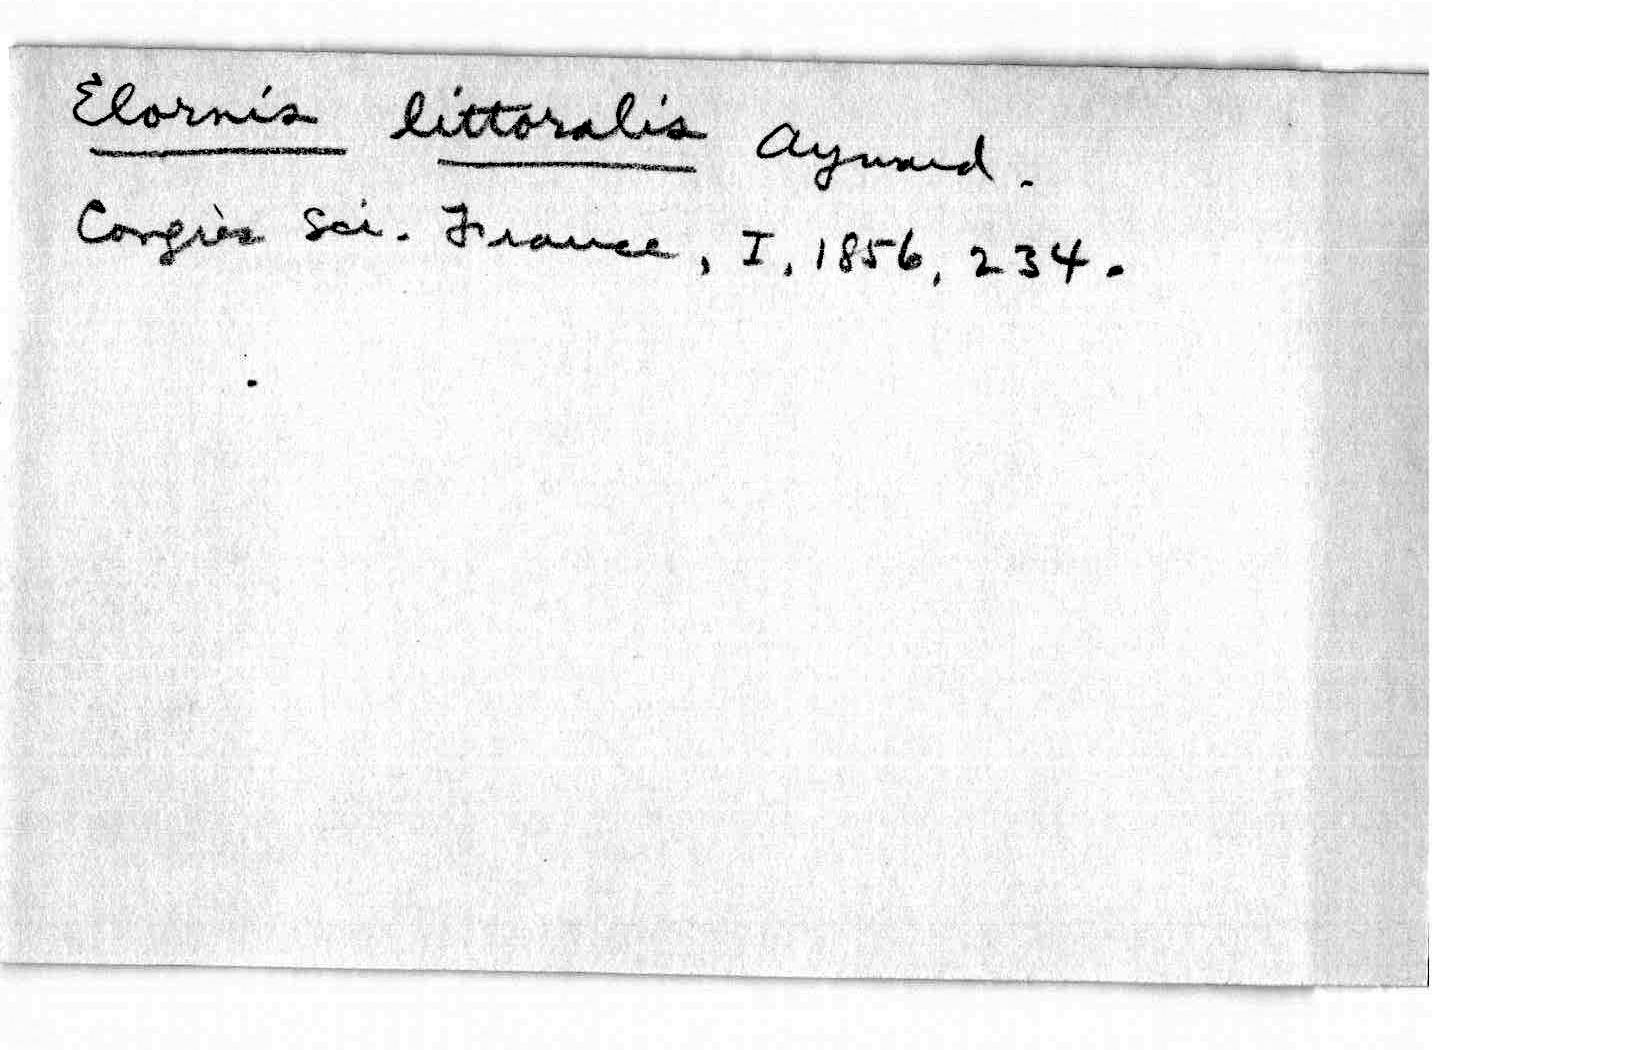 Elornis littoralis Aymard.
Congrès Sci. France, I, 1856, 234.